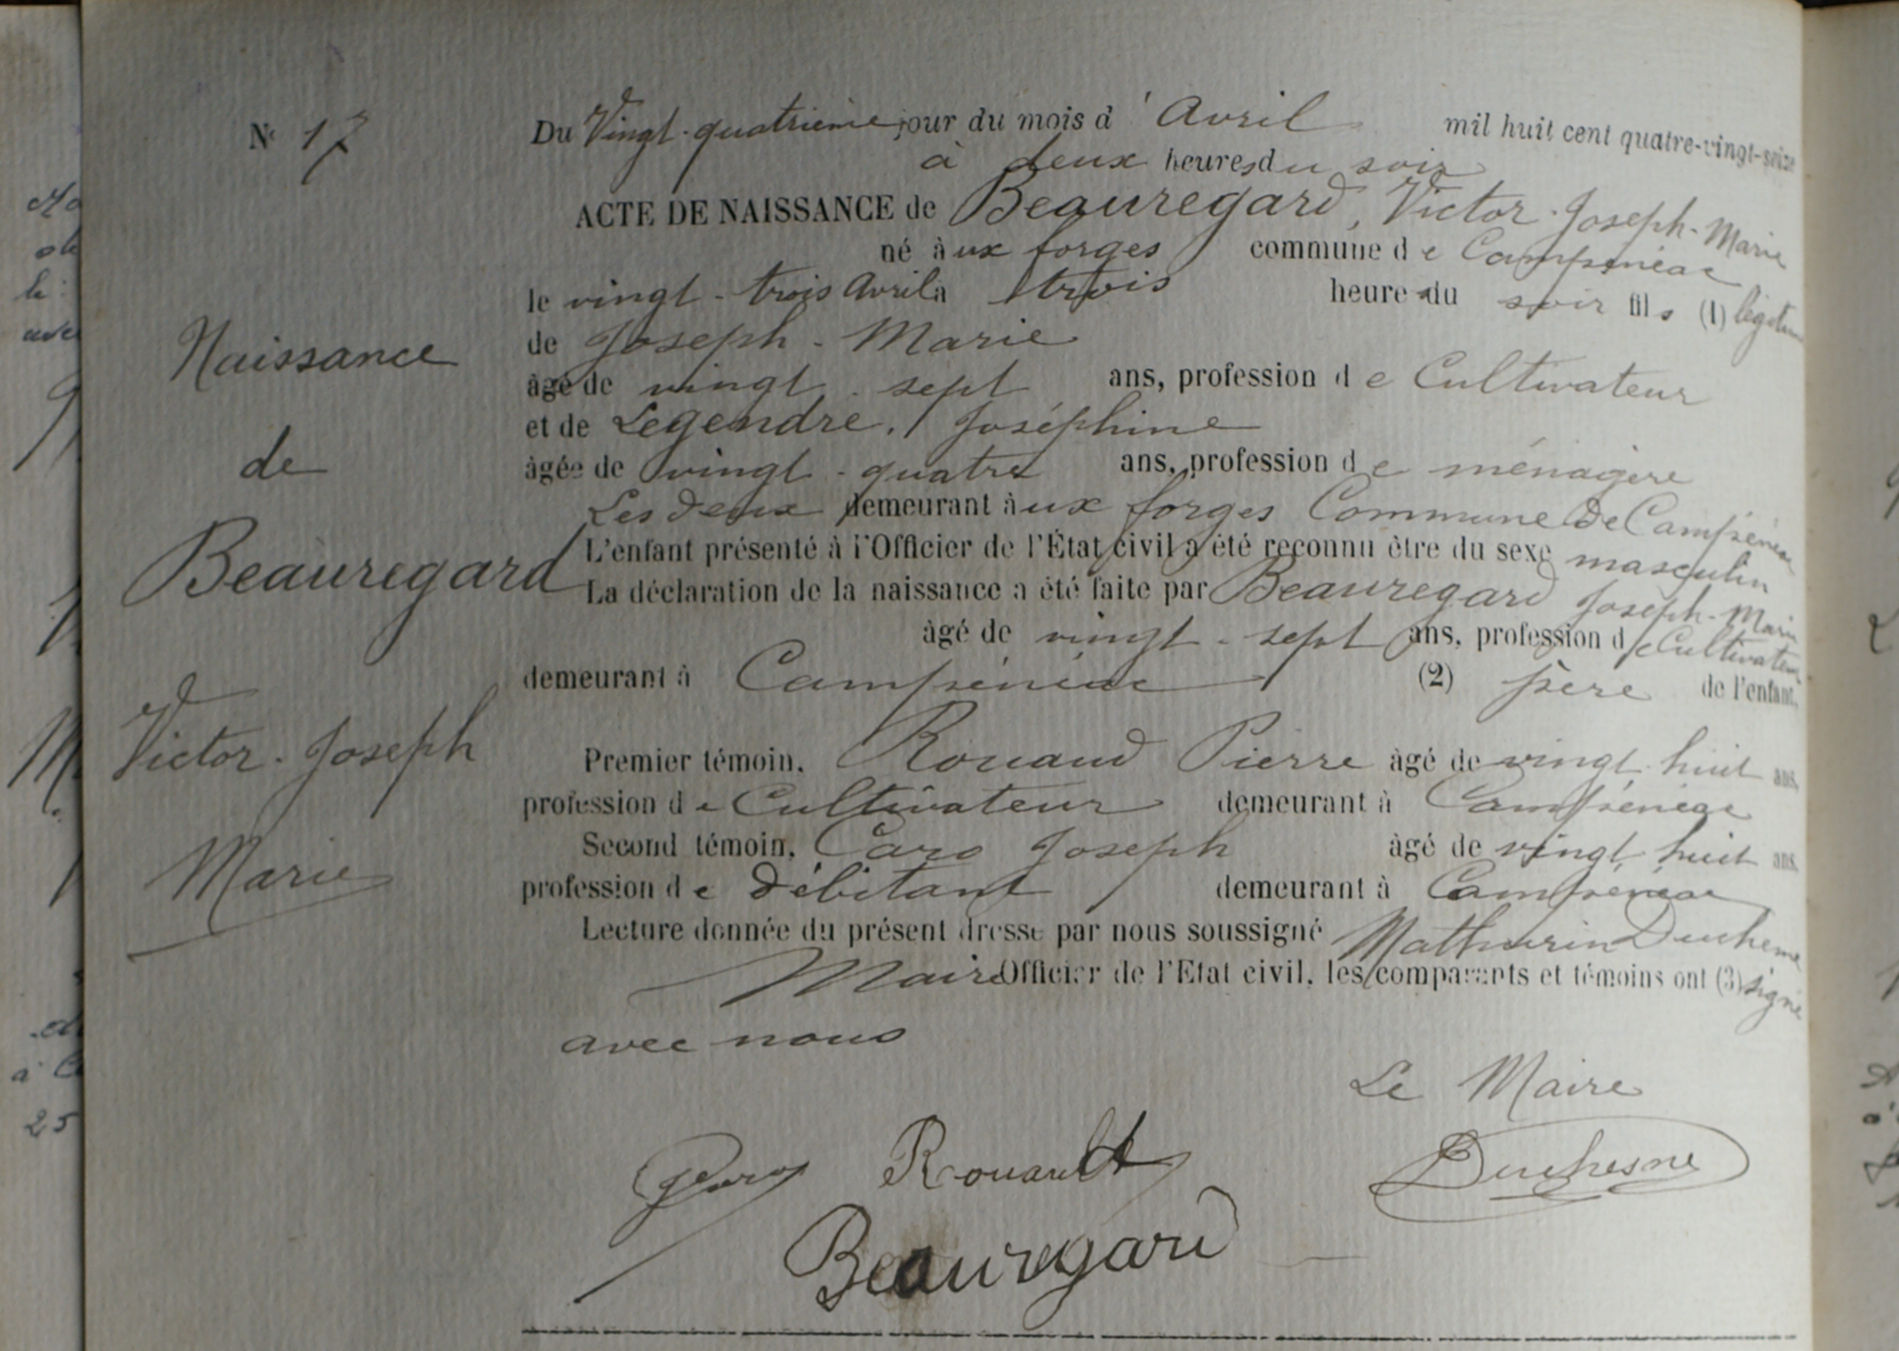 N° 17
Du Vingt-quatrième jour du mois d'Avril mil huit cent quatre-vingt-seize
à deux heures du soir
ACTE DE NAISSANCE de Beauregard, Victor-Joseph-Marie
né à ux forges commune de Campénéac
le vingt-trois Avril à trois heures du soir fils (1) légitime
de Joseph-Marie
âgé de vingt-sept ans, profession de Cultivateur
et de Legendre, Joséphine
âgée de vingt-quatre ans, profession de ménagère
Les deux demeurant à ux forges Commune de Campénéac
L'enfant présenté à l'Officier de l'État civil a été reconnu être du sexe masculin
La déclaration de la naissance a été faite par Beauregard Joseph-Marie
âgé de vingt-sept ans, profession de Cultivateur
demeurant à Campénéac (2) père de l'enfant.
Premier témoin, Rouaud Pierre âgé de vingt huit ans,
profession de Cultivateur demeurant à Campénéac
Second témoin, Caro Joseph âgé de vingt huit ans,
profession de débitant demeurant à Campénéac
Lecture donnée du présent dressé par nous soussigné Mathurin Duchesne
Maire Officier de l'Etat civil, les comparants et témoins ont (3) signé
avec nous
Naissance
de
Beauregard
Victor-Joseph
Marie
Le Maire
Rouault
Duchesne
Beauregard